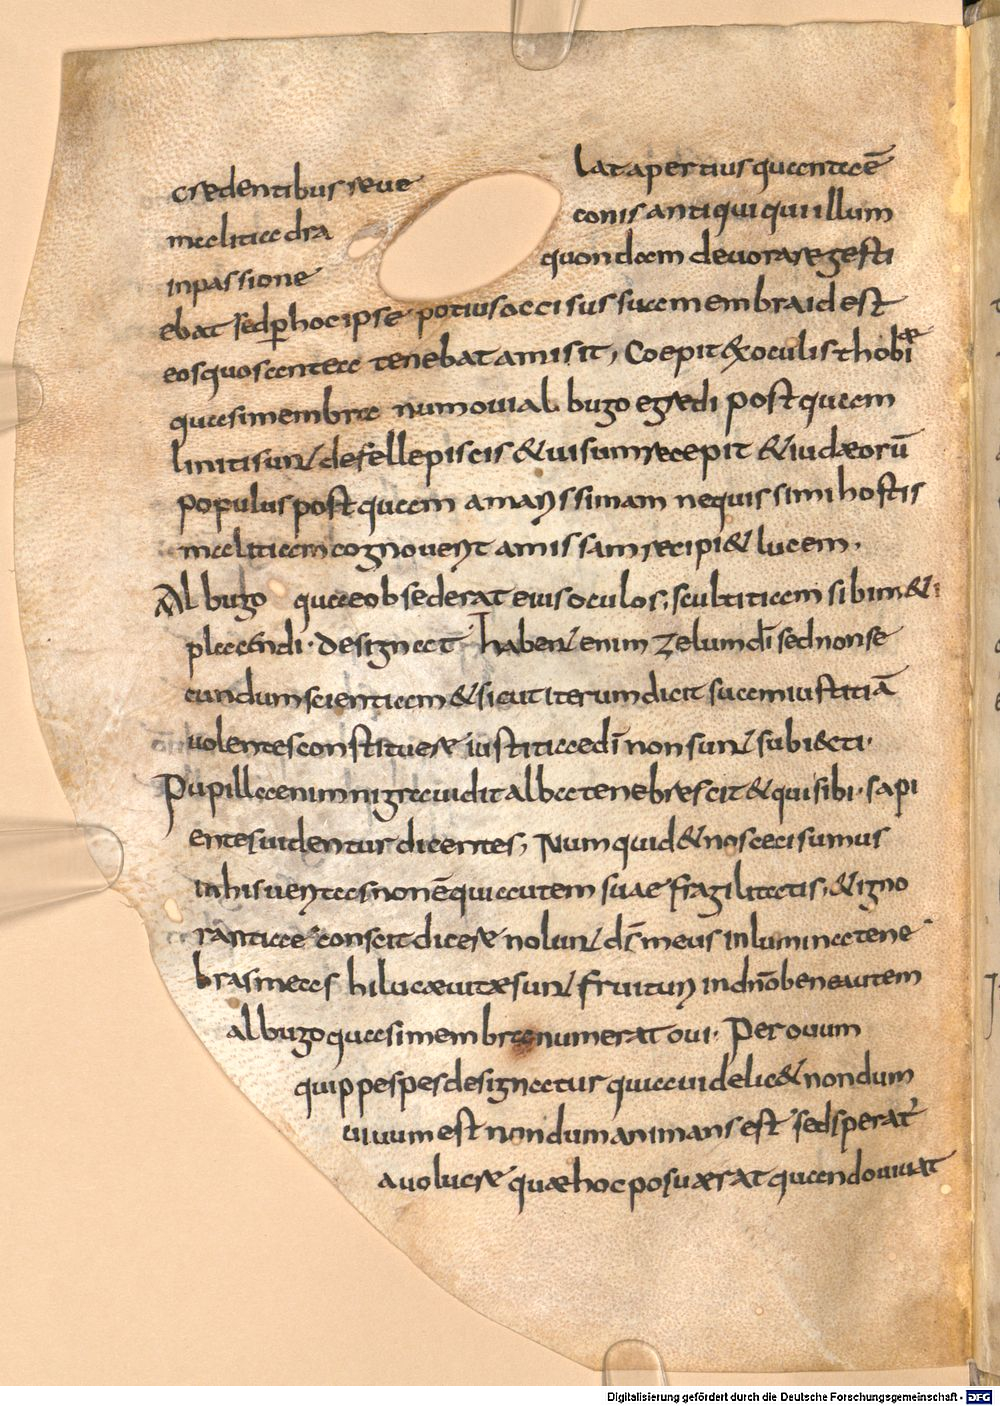 credentibus reue lat apertius quantaē
malitia dra conis antiqui qui illum
inpassione quondam deuorare gesti
ebat sed phoc ipse potius occisus suamembra id est
eos quos antea tenebat amisit, Coepit & ex oculis thobi ae
quasi membra num oui albugo egredi post quam
liniti sunt de felle piscis & uisum recepit & iudæorū
populus post quam amarissimam nequissimi hostis
malitiam cognouerit amissam recipi& lucem.
Albugo quae obsederat eius oculos, stultitiam sibim& i
placendi. designat habent enim zelum dī sed non se
cundum scientiam & sicut iterum dicit suam iustitiā
uolentes constituere iustitiae dī non sunt subiecti.
Pupilla enim nigra uidit alba tenebrescit & qui sibi. sapi
entes uidentur dicentes, Numquid & nos caeci sumus
in his ueritas non ē qui autem suae fragilitatis, & igno
rantiae conscii dicere nolunt dś meus inlumina tene
bras meas hi lucae uitæ sunt fruituri in dnō bene autem
albugo quasi membra numerat oui. Per ouum
quippe spes designatur quia uidelic& nondum
uiuum est nondum animans est sed sperat'
a uolucre quæ hoc posuærat quando uiuat
Digitalisierung gefördert durch die Deutsche Forschungsgemeinschaft - DFG